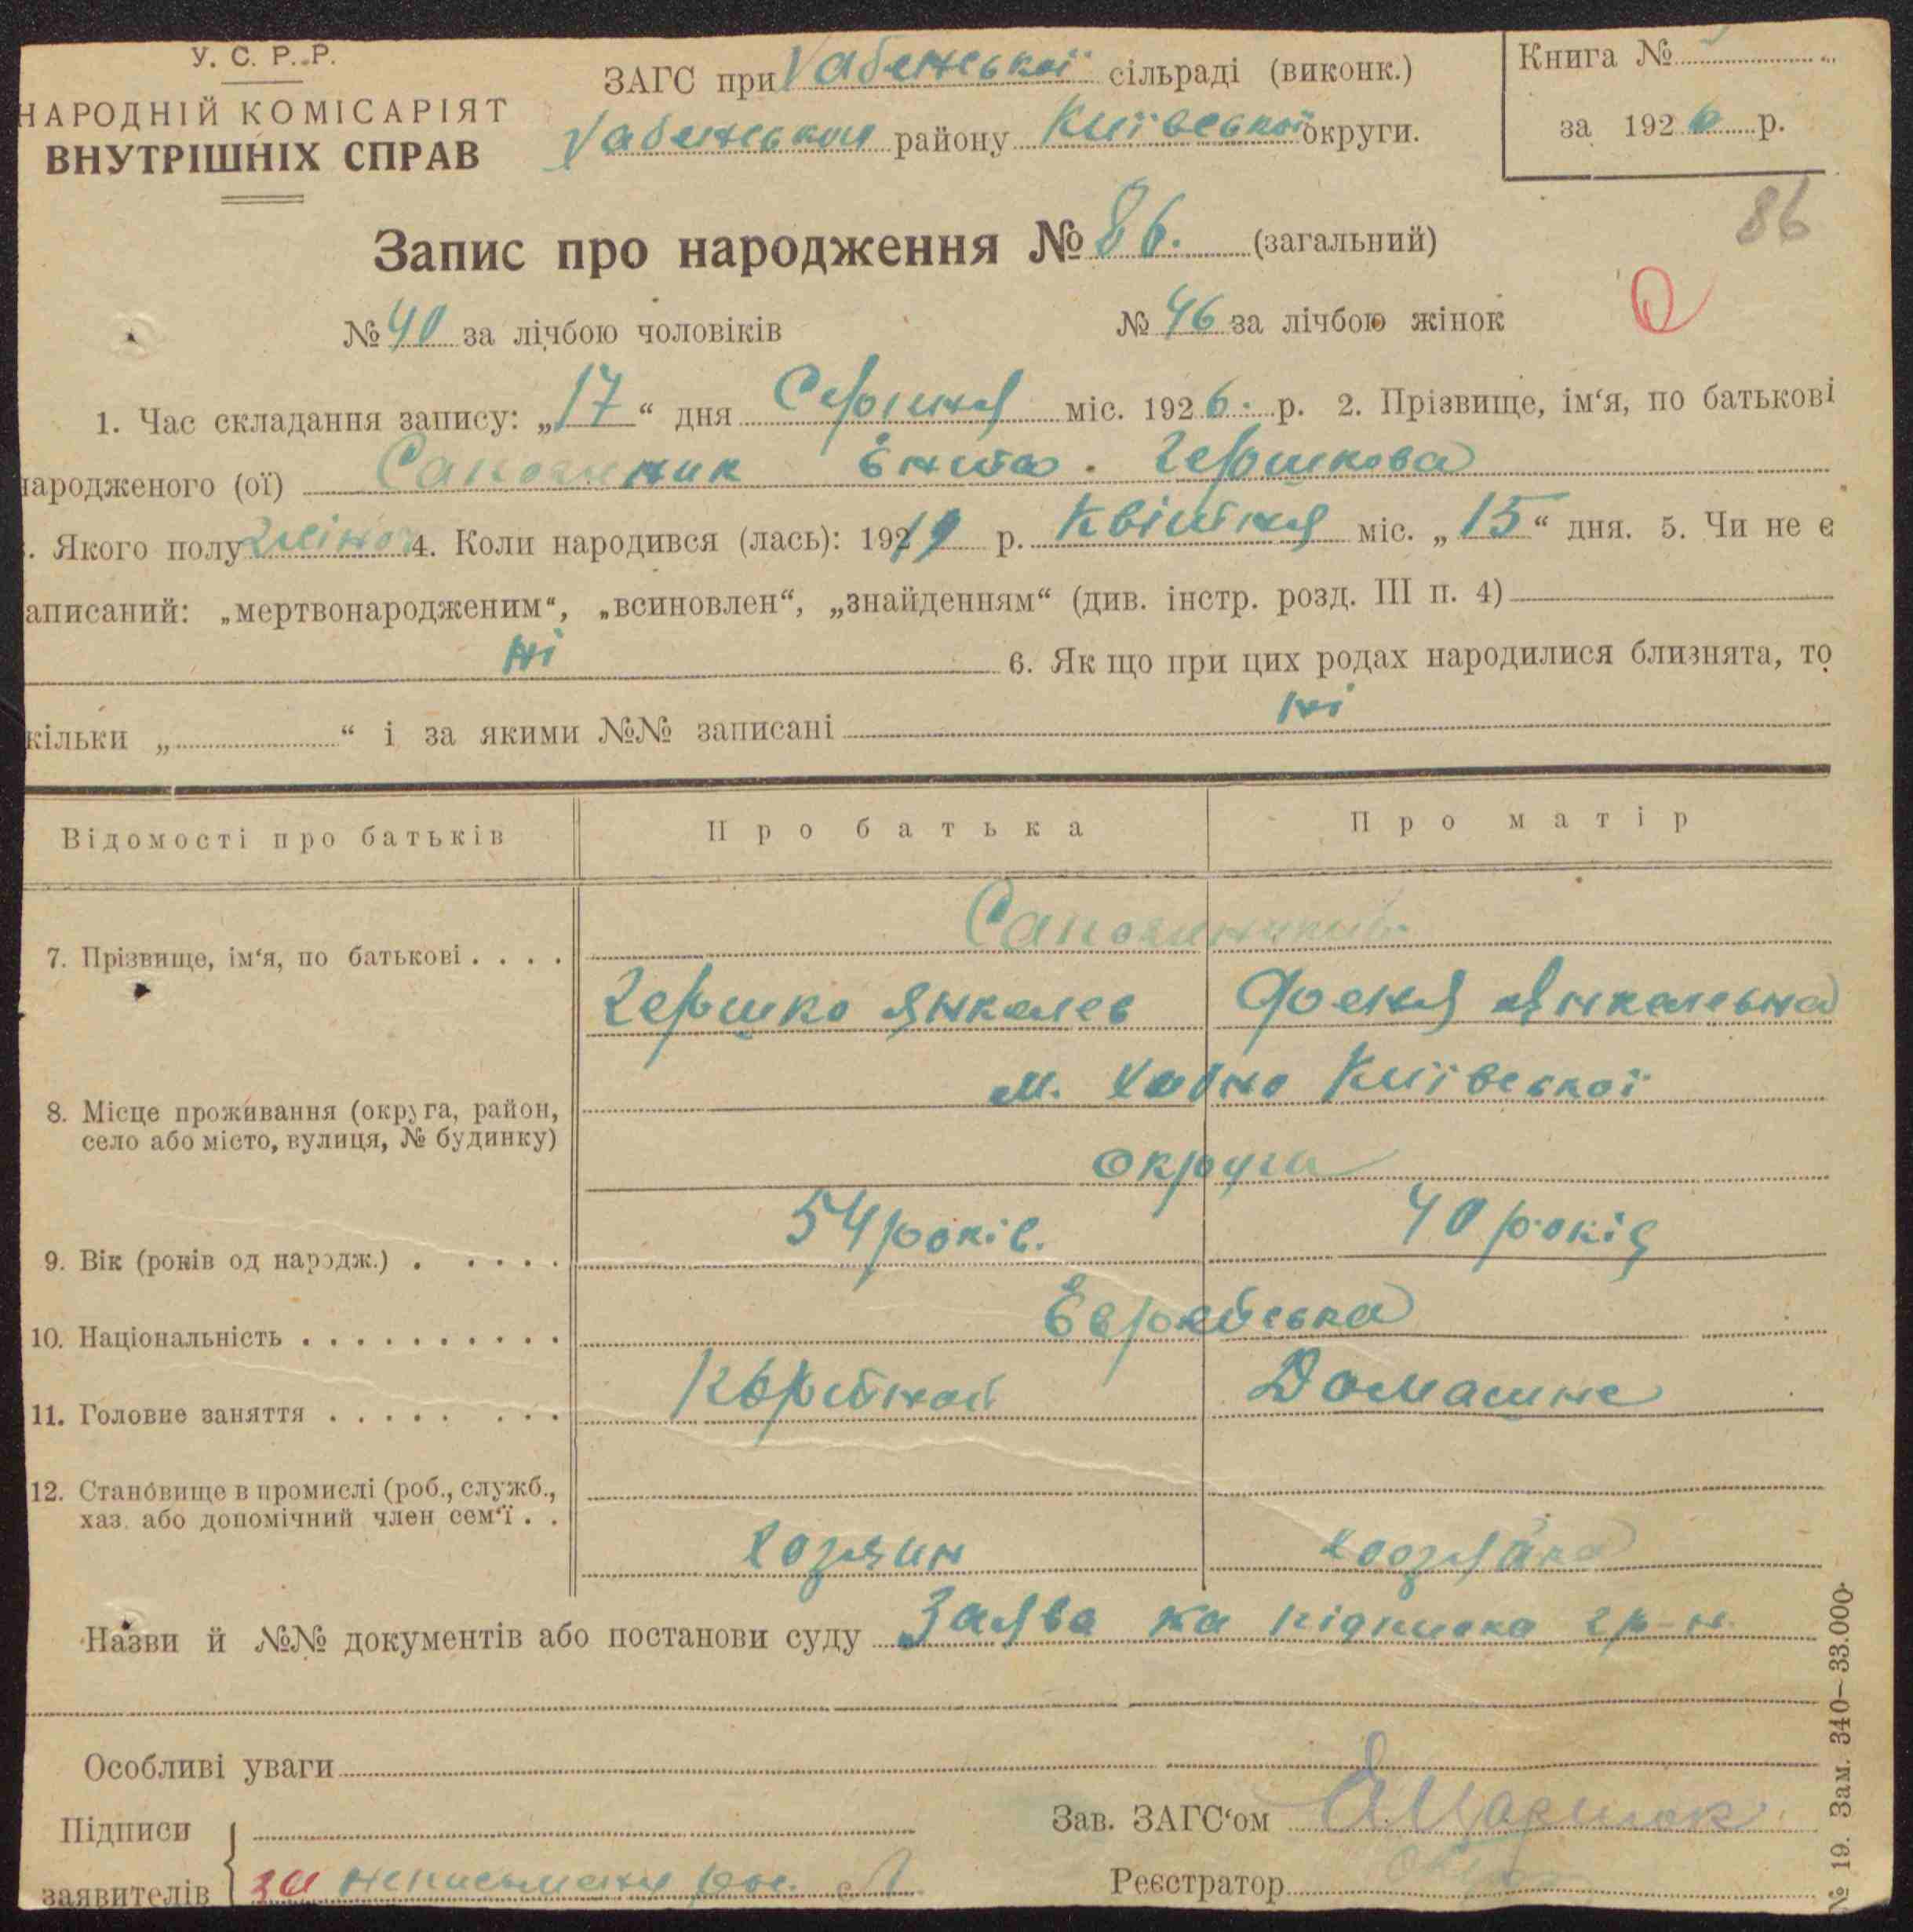 У. С. Р. Р.
НАРОДНІЙ КОМІСАРІЯТ
ВНУТРІШНІХ СПРАВ
ЗАГС при Хабенської сільраді (виконк.)
Хабенського району Київської округи.
Книга №
за 1926 р.
86
Запис про народження № 86. (загальний)
№ 40 за лічбою чоловіків
№ 46 за лічбою жінок
1. Час складання запису: „17“ дня Серпня міс. 1926. р. 2. Прізвище, ім‘я, по батькові
народженого (ої) Сапожник Ента. Гершкова
. Якого полу жіноч 4. Коли народився (лась): 1919 р. Квітня міс. „15“ дня. 5. Чи не є
аписаний: „мертвонародженим“, „всиновлен“, „знайденням“ (див. інстр. розд. III п. 4)
ні 6. Як що при цих родах народилися близнята, то
кільки „ “ і за якими №№ записані ні
Відомості про батьків
Про батька
Про матір
7. Прізвище, ім‘я, по батькові . . . .
Гершко Янкелев
Фоеня Янкелевна
8. Місце проживання (округа, район,
село або місто, вулиця, № будинку)
м. Хабно Київської
округа
9. Вік (років од народж.) . . . . .
54 років.
40 років
10. Національність . . . . . . . . . .
Еврейська
11. Головне заняття . . . . . . . .
Домашне
12. Становище в промислі (роб., служб.,
хаз. або допомічний член сем‘ї . .
Хозяин
Назви й №№ документів або постанови суду Заява та підписка гр-н.
Особливі уваги
Підписи
заявителів
за
Зав. ЗАГС‘ом
Реєстратор
№ 19. Зам. 340—33.000.